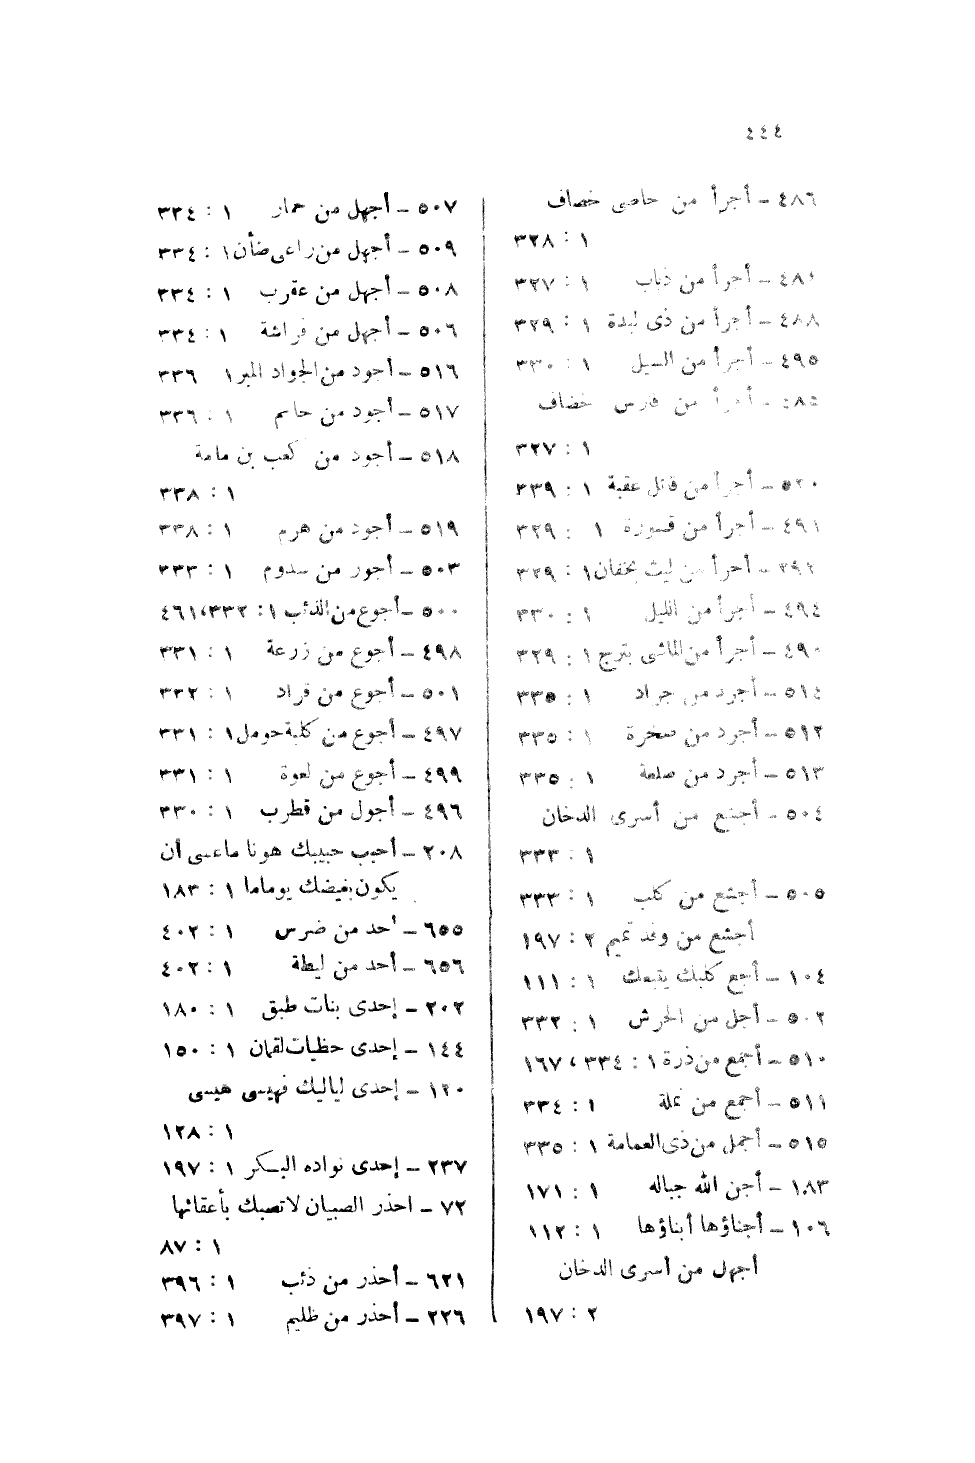 ٤٤٤
٤٨٦ – أجرأ من خاصى خصاف
١ : ٣٢٨
أجرأ من ذباب ١ : ٣٢٧
٤٨٨ – أجرأ من ذى لبدة ١ : ٣٢٩
٤٩٥ – أجرأ من السيل ١ : ٣٣٠
أجرأ من فارس خضاف
١ : ٣٢٧
٥٢٠ – أجرأ من قاتل عقبة ١ : ٣٣٩
٤٩١ – أجرأ من قسورة ١ : ٣٢٩
أجرأ من ليث بخفان ١ : ٣٢٩
٤٩٤ – أجرأ من الليل ١ : ٣٣٠
٤٩٠ – أجرأ من الماشى بترج ١ : ٣٢٩
٥١٤ – أجرد من جراد ١ : ٣٣٥
٥١٢ – أجرد من صخرة ١ : ٣٣٥
٥١٣ – أجرد من صلعة ١ : ٣٣٥
٥٠٤ – أجشع من أسرى الدخان
١ : ٣٣٣
٥٠٥ – أجشع من كلب ١ : ٣٣٣
أجشع من وفد تميم ٢ : ١٩٧
١٠٤ – أجع كلبك يتبعك ١ : ١١١
٥٠٢ – أجل من الحرش ١ : ٣٣٢
٥١٠ – أجمع من ذرة ١ : ٣٣٤ ، ١٦٧
٥١١ – أجمع من نملة ١ : ٣٣٤
٥١٥ – أجمل من ذى العمامة ١ : ٣٣٥
١٨٣ – أجن الله جباله ١ : ١٧١
١٠٦ – أجناؤها أبناؤها ١ : ١١٢
أجهل من أسرى الدخان
٢ : ١٩٧
٥٠٧ – أجهل من حمار ١ : ٣٣٤
٥٠٩ – أجهل من راعى ضأن ١ : ٣٣٤
٥٠٨ – أجهل من عقرب ١ : ٣٣٤
٥٠٦ – أجهل من فراشة ١ : ٣٣٤
٥١٦ – أجود من الجواد المبر ١ ٣٣٦
٥١٧ – أجود من حاتم ١ : ٣٣٦
٥١٨ – أجود من كعب بن مامة
١ : ٣٣٨
٥١٩ – أجود من هرم ١ : ٣٣٨
٥٠٣ – أجور من سدوم ١ : ٣٣٣
٥٠٠ – أجوع من الذئب ١ : ٣٣٢ ، ٤٦١
٤٩٨ – أجوع من زرعة ١ : ٣٣١
٥٠١ – أجوع من قراد ١ : ٣٣٢
٤٩٧ – أجوع من كلبة حومل ١ : ٣٣١
٤٩٩ – أجوع من لعوة ١ : ٣٣١
٤٩٦ – أجول من قطرب ١ : ٣٣٠
٢٠٨ – أحبب حبيبك هونا ما عسى أن
يكون بغيضك يوما ما ١ : ١٨٣
٦٥٥ – أحد من ضرس ١ : ٤٠٢
٦٥٦ – أحد من ليطة ١ : ٤٠٢
٢٠٢ – إحدى بنات طبق ١ : ١٨٠
١٤٤ – إحدى حظيات لقمان ١ : ١٥٠
١٢٠ – إحدى لياليك فهيسى هيسى
١ : ١٢٨
٢٣٧ – إحدى نواده البكر ١ : ١٩٧
٧٢ – احذر الصبيان لا تصبك بأعقائها
١ : ٨٧
٦٢١ – أحذر من ذئب ١ : ٣٩٦
٢٢٦ – أحذر من ظليم ١ : ٣٩٧